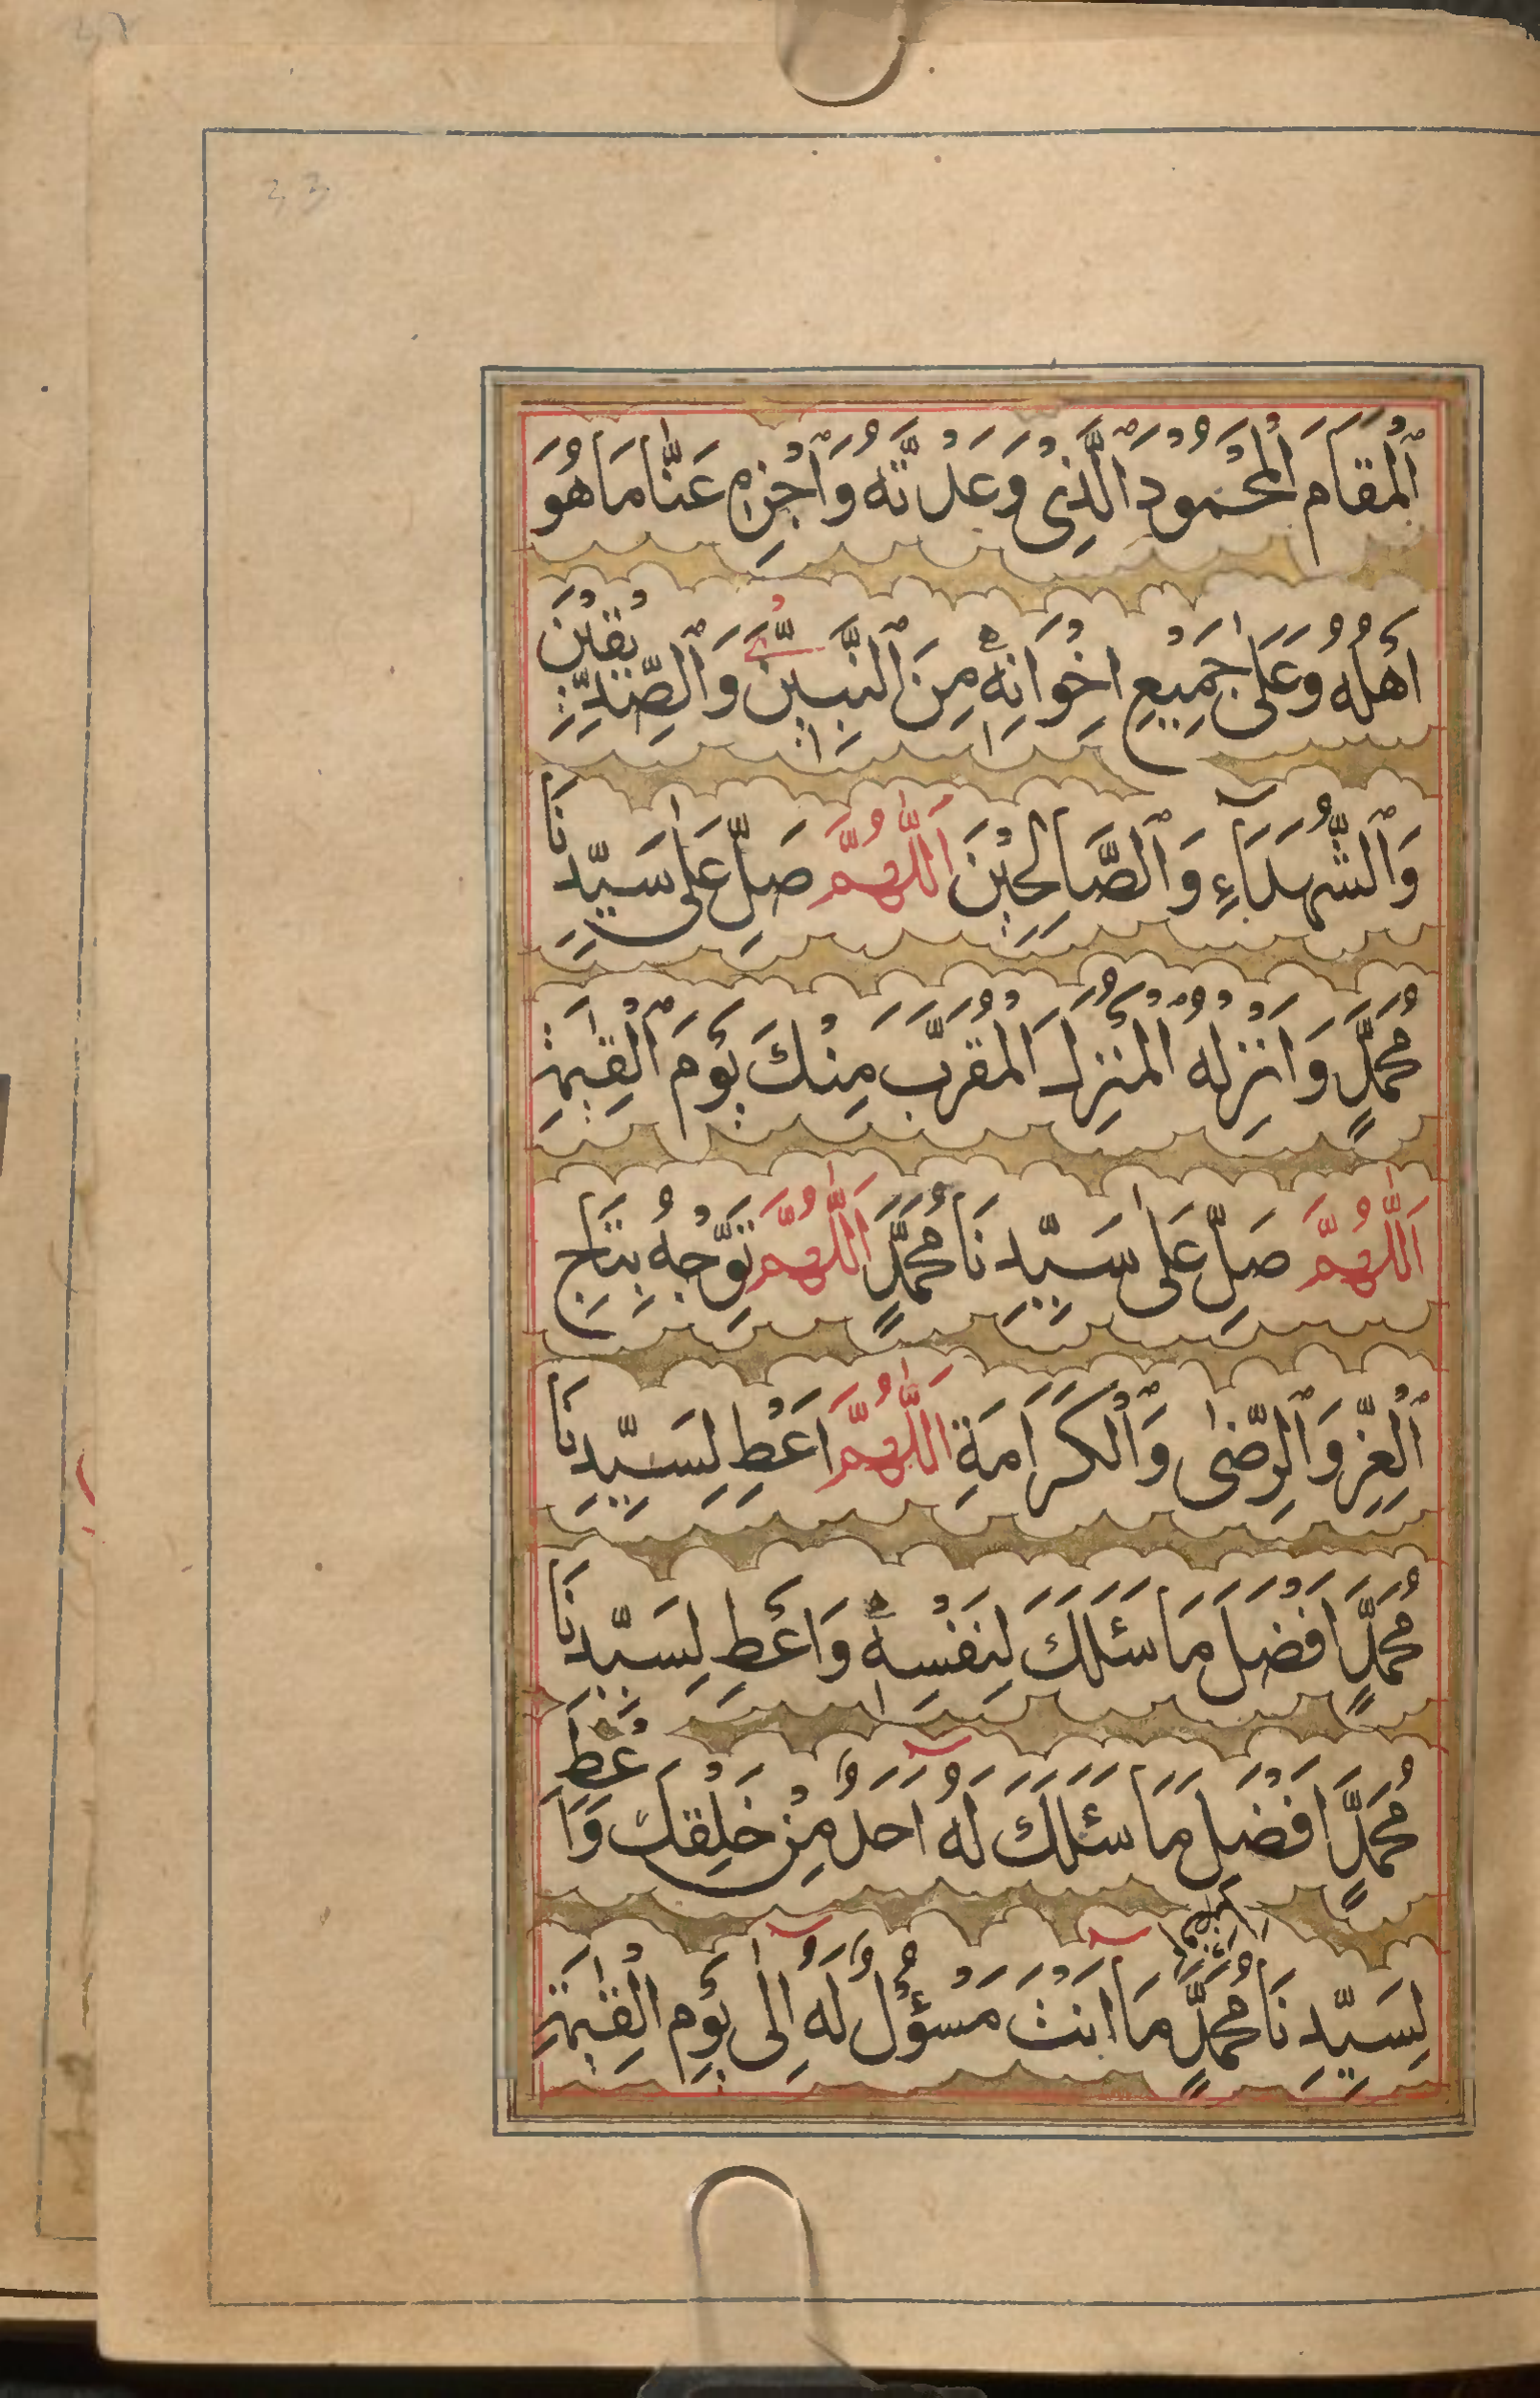 33
ٱلْمَقَامَ الْمَحْمُودَ ٱلَّذِیْ وَعَدْتَّهُ وَٱجْزِهٖ عَنَّا مَا هُوَ
اَهْلُهُ وَعَلٰی جَمِيْعِ اِخْوَانِهٖ مِنَ ٱلنَّبِيّٖنَ وَٱلصِّدِّيْقِيْنَ
وَٱلشُّهَدَآءِ وَٱلصَّالِحِيْنَ اَللّٰهُمَّ صَلِّ عَلٰی سَيِّدِنَا
مُحَمَّدٍ وَاَنْزِلْهُ ٱلْمُنْزَلَ الْمُقَرَّبَ مِنْكَ يَوْمَ ٱلْقِيٰمَةِ
اَللّٰهُمَّ صَلِّ عَلٰی سَيِّدِنَا مُحَمَّدٍ اَللّٰهُمَّ تَوِّجْهُ بِتَاجِ
ٱلْعِزِّ وَٱلرِّضٰی وَٱلْكَرَامَةِ اَللّٰهُمَّ اَعْطِ لِسَيِّدِنَا
مُحَمَّدٍ اَفْضَلَ مَا سَئَلَكَ لِنَفْسِهٖ وَاَعْطِ لِسَيِّدِنَا
مُحَمَّدٍ اَفْضَلَ مَا سَئَلَكَ لَهُ اَحَدٌ مِنْ خَلْقِكَ وَاَعْطِ
لِسَيِّدِنَا مُحَمَّدٍ مَا اَنْتَ مَسْؤُلٌ لَهُ اِلٰی يَوْمِ الْقِيٰمَةِ